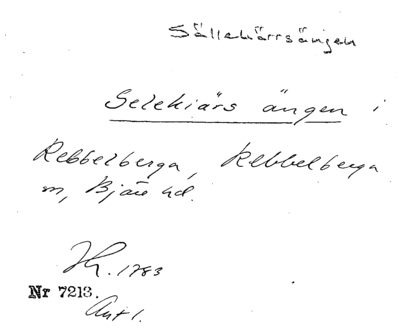 Sällekärrsängen
Selekiärs ängen i
Rebbelberga, Rebbelberga
sn, Bjäre hd.
1783
Nr 7213.
Akt 1.